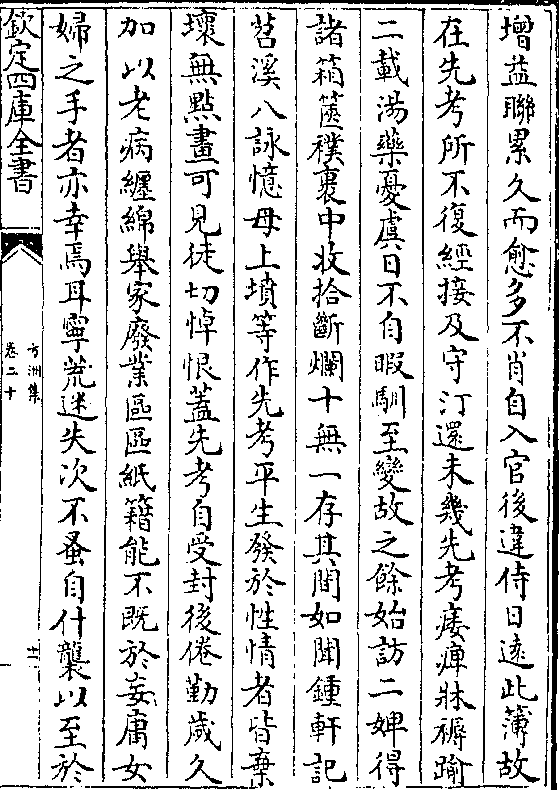 增益聯累久而愈多不肖自入官後違侍日逺此簿故
在先考所不復經接及守汀還未幾先考痿痺牀褥踰
二載湯藥憂虞日不自暇馴至變故之餘始訪二婢得
諸箱篋襆裹中收拾斷爛十無一存其間如聞鍾軒記
苕溪八詠憶母上墳等作先考平生發於性情者皆棄
壞無㸃畫可見徒切悼恨蓋先考自受封後倦勤歲久
加以老病纏綿舉家廢業區區紙籍能不既於妄庸女
婦之手者亦幸焉耳寧荒迷失次不蚤自什襲以至於
欽定四庫全書
方洲集
卷二十
十一